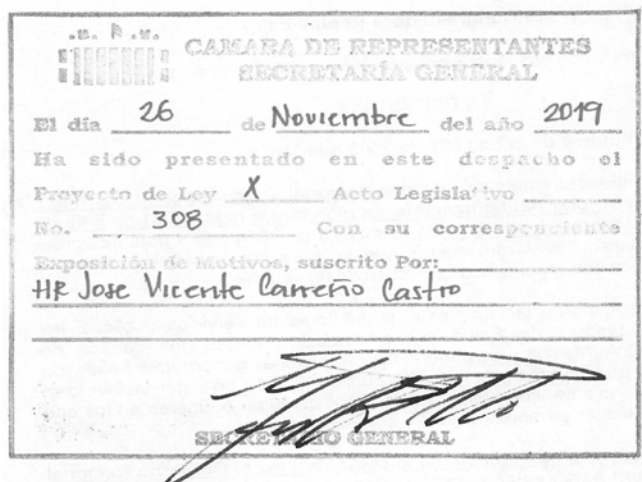 CAMARA DE REPRESENTANTES
SECRETARÍA GENERAL
El día 26 de Noviembre del año 2019
Ha sido presentado en este despacho el
Proyecto de Ley X Acto Legislativo
No. 308 Con su correspondiente
Exposición de Motivos, suscrito Por:
HR Jose Vicente Carreño Castro
SECRETARIO GENERAL